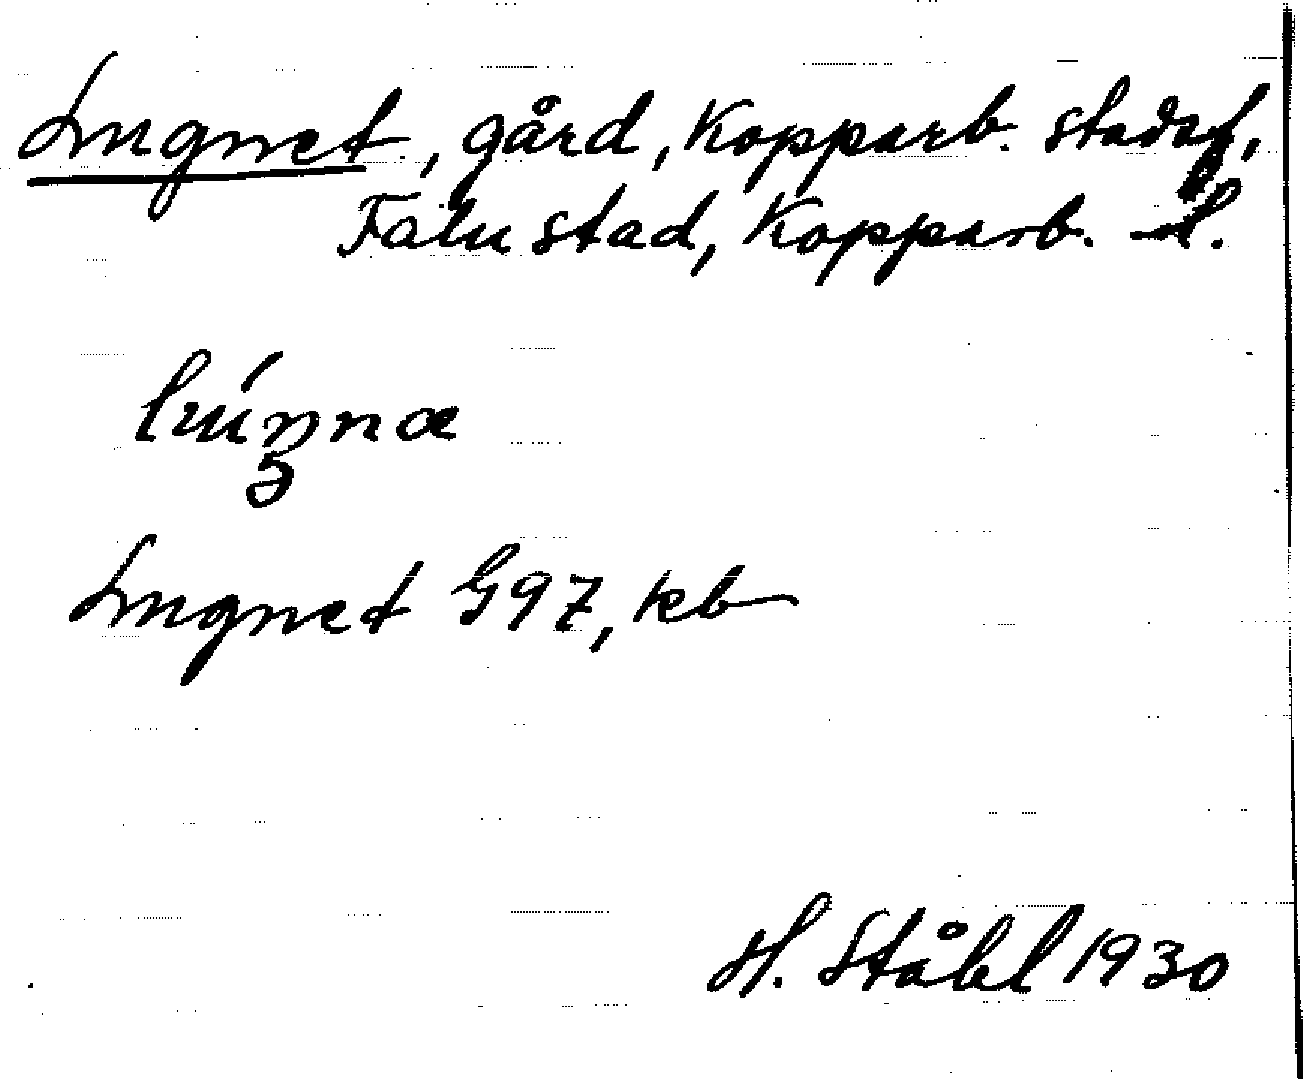 Lugnet, gård, Kopparb. stadsf,
Falu stad, Kopparb. l.
Lugnet G97, kb
H. Ståhl 1930